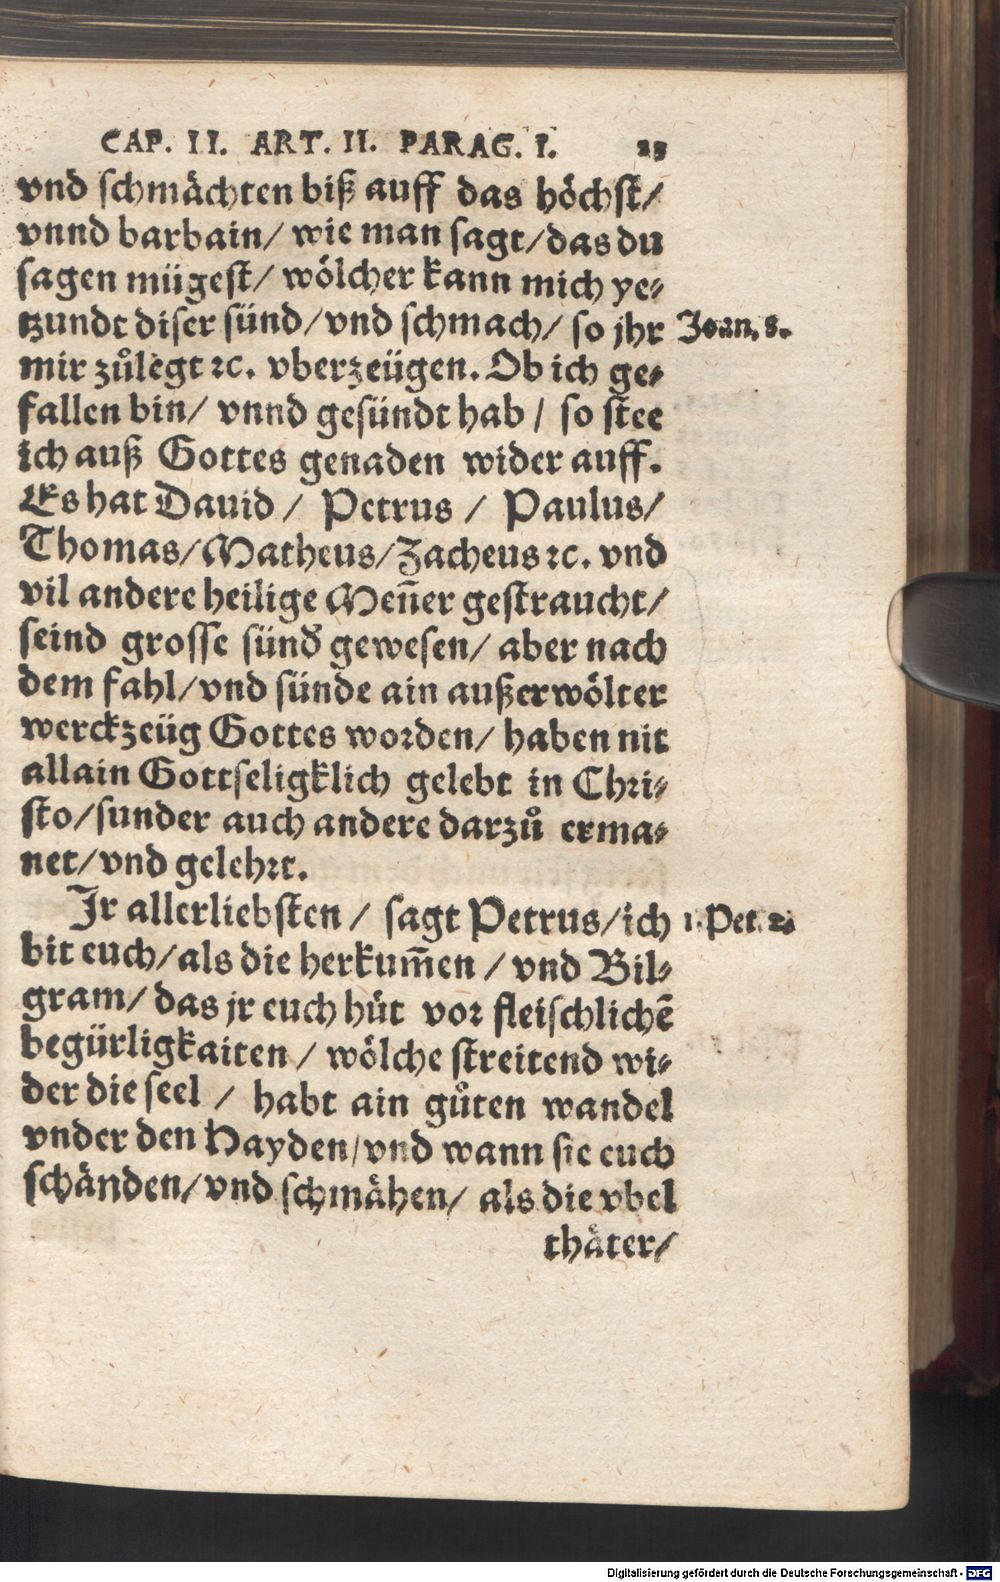 CAP. II. ART. II. PARAG. I. 23
vnd schmächten biß auff das höchst/
vnnd barbain/ wie man sagt/das du
sagen mügest/ wölcher kann mich ye⸗
tzundt diser sünd/vnd schmach/ so jhr
Joan. 8.
mir zůlegt ꝛc. vberzeügen. Ob ich ge⸗
fallen bin/ vnnd gesündt hab / so stee
ich auß Gottes genaden wider auff.
Es hat Dauid / Petrus / Paulus/
Thomas/Matheus/Zacheus ꝛc. vnd
vil andere heilige Men̄er gestraucht/
seind grosse sünd̕ gewesen/ aber nach
dem fahl/vnd sünde ain außerwölter
werckzeüg Gottes worden/ haben nit
allain Gottseligklich gelebt in Chri⸗
sto/sunder auch andere darzů erma⸗
net/vnd gelehrt.
Jr allerliebsten / sagt Petrus/ich
1. Pet. 2.
bit euch/als die herkum̄en /vnd Bil⸗
gram/ das jr euch hüt vor fleischlichē
begürligkaiten / wölche streitend wi⸗
der die seel / habt ain gůten wandel
vnder den Hayden/vnd wann sie euch
schänden/vnd schmähen/ als die vbel
thäter/
Digitalisierung gefördert durch die Deutsche Forschungsgemeinschaft - DFG